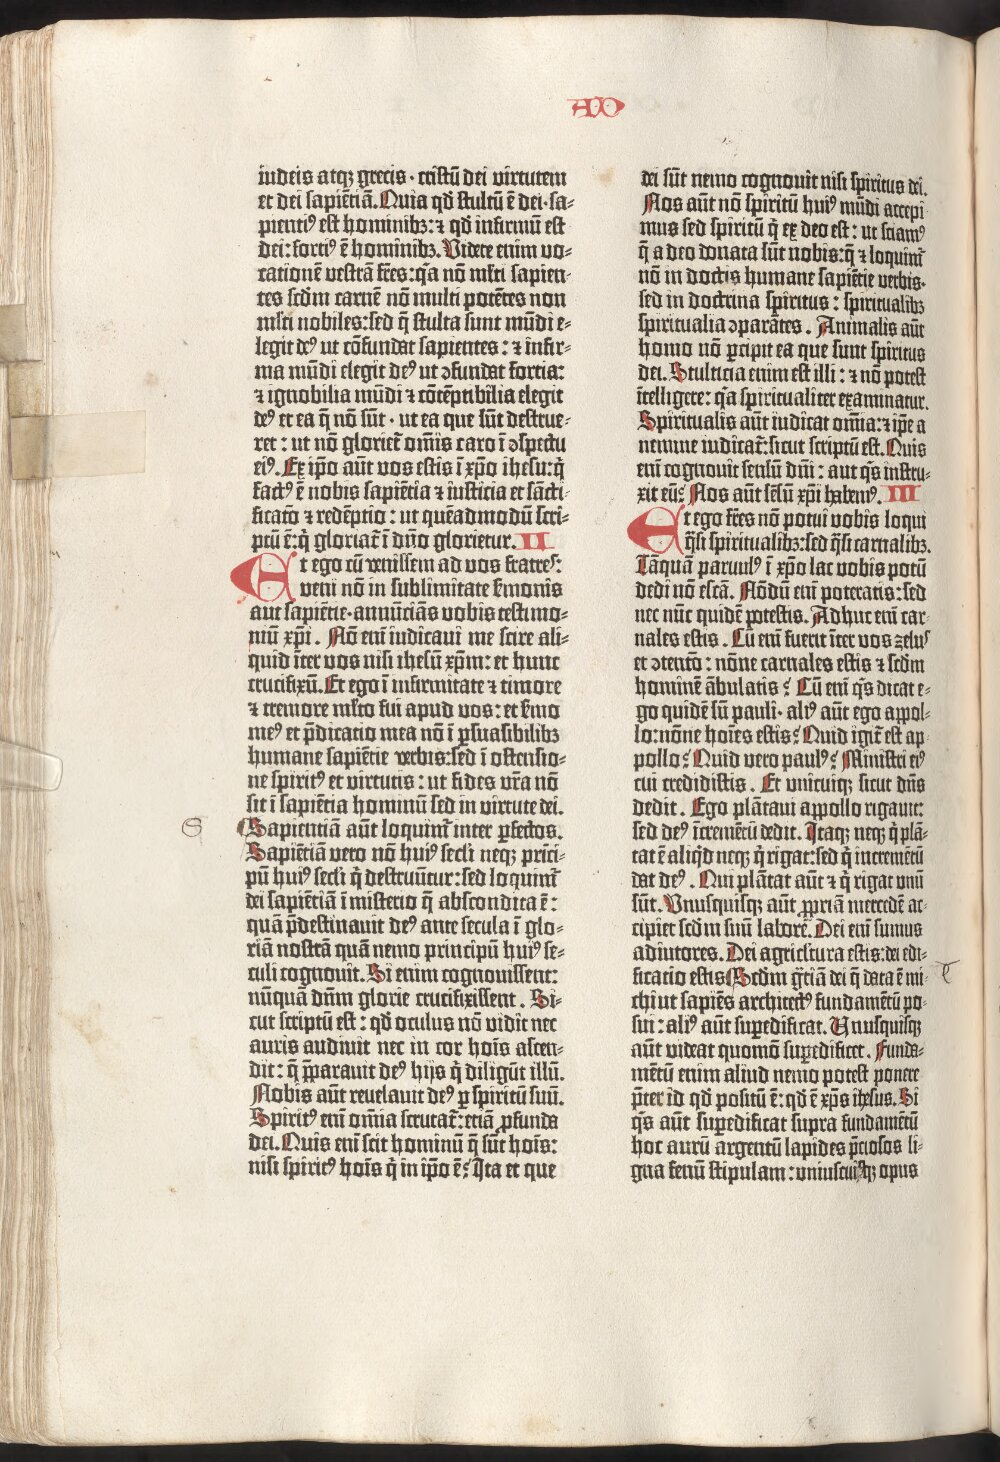 AD
iudeis atqꝫ grecis · cristū dei virtutem
et dei sapiētiā. Quia qđ stultū ē dei · sa-
pientiꝰ est hominibꝫ: ⁊ qđ infirmū est
dei: fortiꝰ ē hominibꝫ. Videte enim vo-
cationē vestrā fr̄es: q̄a nō ml̄ti sapien-
tes scd̄m carnē nō multi potētes non
ml̄ti nobiles: sed q̄ stulta sunt mūdi e-
legit deꝰ ut cōfundat sapientes: ⁊ infir-
ma mūdi elegit deꝰ ut ꝯfundat fortia:
⁊ ignobilia mūdi ⁊ cōtēptibilia elegit
deꝰ et ea q̄ nō sūt · ut ea que sūt destrue-
ret: ut nō glorieť om̄is caro ī ꝯspectu
eiꝰ. Ex ip̄o aūt vos estis ī xp̄o ihesu: q̄
factꝰ ē nobis sapiētia ⁊ iusticia et sācti-
ficatō ⁊ redēptio: ut quēadmodū scri-
ptū ē: q̄ gloriať ī dn̄o glorietur. II
Et ego cū venissem ad vos fratres:
veni nō in sublimitate ẜmonis
aut sapiētie · annūciās vobis testimo-
niū xp̄i. Nō eni iudicaui me scire ali-
quid īter vos nisi ihesū xp̄m: et hunc
crucifixū. Et ego ī infirmitate ⁊ timore
⁊ tremore ml̄to fui apud vos: et ẜmo
meꝰ et p̄dicatio mea nō ī ꝑsuasibilibꝫ
humane sapiētie verbis: sed ī ostensio-
ne spiritꝰ et virtutis: ut fides vr̄a nō
sit ī sapiētia hominū sed in virtute dei.
S
Sapientiā aūt loquimꝰ inter ꝑfectos.
Sapiētiā vero nō huiꝰ secl̄i neqꝫ prīci-
pū huiꝰ secl̄i q̄ destruūtur: sed loquimꝰ
dei sapiētiā ī misterio q̄ abscondita ē:
quā p̄destinauit deꝰ ante secula ī glo-
riā nostrā quā nemo principū huiꝰ se-
culi cognouit. Si enim cognouissent:
nūquā dn̄m glorie crucifixissent. Si-
cut scriptū est: qđ oculus nō vidit nec
auris audiuit nec in cor hoīs ascen-
dit: q̄ p̄parauit deꝰ hijs q̄ diligūt illū.
Nobis aūt reuelauit deꝰ ꝑ spiritū suū.
Spiritꝰ eni om̄ia scrutať: etiā ꝓfunda
dei. Quis eni scit hominū q̄ sūt hoīs:
nisi spiritꝰ hoīs q̄ in ip̄o ē? Ita et que
dei sūt nemo cognouit nisi spiritus dei.
Nos aūt nō spiritū huiꝰ mūdi accepi
mus sed spiritū q̄ ex deo est: ut sciamꝰ
q̄ a deo donata sūt nobis: q̄ ⁊ loquimꝰ
nō in doctis humane sapiētie verbis ·
sed in doctrina spiritus: spiritualibꝫ
spiritualia ꝯparātes. Animalis aūt
homo nō ꝑcipit ea que sunt spiritus
dei. Stulticia enim est illi: ⁊ nō potest
ītelligere: q̄a spiritualiter examinatur.
Spiritualis aūt iudicat om̄ia: ⁊ ip̄e a
nemine iudicať: sicut scriptū est. Quis
eni cognouit sensū dn̄i: aut q̄s instru-
xit eū? Nos aūt sēsū xp̄i habemꝰ. III
Et ego fr̄es nō potui vobis loqui
q̄si spiritualibꝫ: sed q̄si carnalibꝫ.
Tāquā paruulꝰ ī xp̄o lac vobis potū
dedi nō escā. Nōdū eni poteratis: sed
nec nūc quidē potestis. Adhuc eni car-
nales estis. Cū eni fuerit īter vos zelus
et ꝯtentō: nōne carnales estis ⁊ scd̄m
hominē ābulatis? Cū eni q̄s dicat e-
go quidē sū pauli · aliꝰ aūt ego appol-
lo: nōne hoīes estis? Quid igiť est ap
pollo? Quid vero paulꝰ? Ministri eiꝰ
cui credidistis. Et vnicuiqꝫ sicut dn̄s
dedit. Ego plātaui appollo rigauit:
sed deꝰ īcremētū dedit. Itaqꝫ neqꝫ q̄ plā-
tat ē aliq̄d neqꝫ q̄ rigat: sed q̄ incremētū
dat deꝰ. Qui plātat aūt ⁊ q̄ rigat vnū
sūt. Vnusquisqꝫ aūt ꝓpriā mercedē ac-
cipiet scd̄m suū laborē. Dei eni sumus
adiutores. Dei agricl̄tura estis: dei edi-
ficatio estis. Scd̄m gr̄tiā dei q̄ data ē mi-
chi ut sapiēs architectꝰ fundamētū po-
sui: aliꝰ aūt suꝑedificat. Vnusquisqꝫ
aūt videat quomō suꝑedificet. Funda-
mētū enim aliud nemo potest ponere
p̄ter id qđ positū ē: qđ ē xp̄s ihesus. Si
q̄s aūt suꝑedificat supra fundamētū
hoc aurū argentū lapides p̄ciosos li-
gna fenū stipulam: vniuscuiꝰqꝫ opus